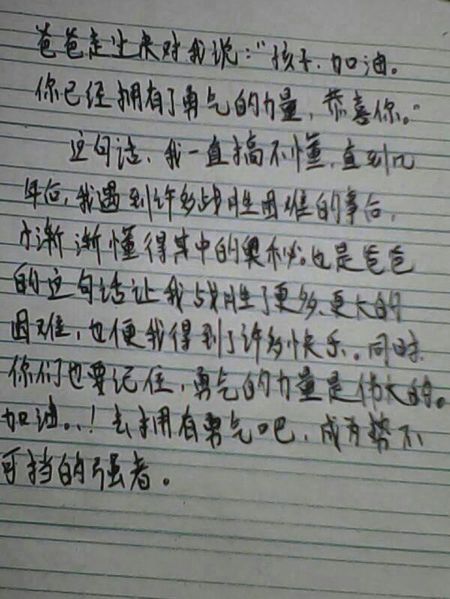 爸爸走出来对我说:“孩子.加油。
你已经拥有了勇气的力量,恭喜你。”
这句话,我一直搞不懂,直到几
年后,我遇到许多战胜困难的事后,
才渐渐懂得其中的奥秘。也是爸爸
的这句话让我战胜了更多、更大的
困难,也使我得到了许多快乐。同时.
你们也要记住,勇气的力量是伟大的。
加油。.!去拥有勇气吧,成为势不
可挡的强者。